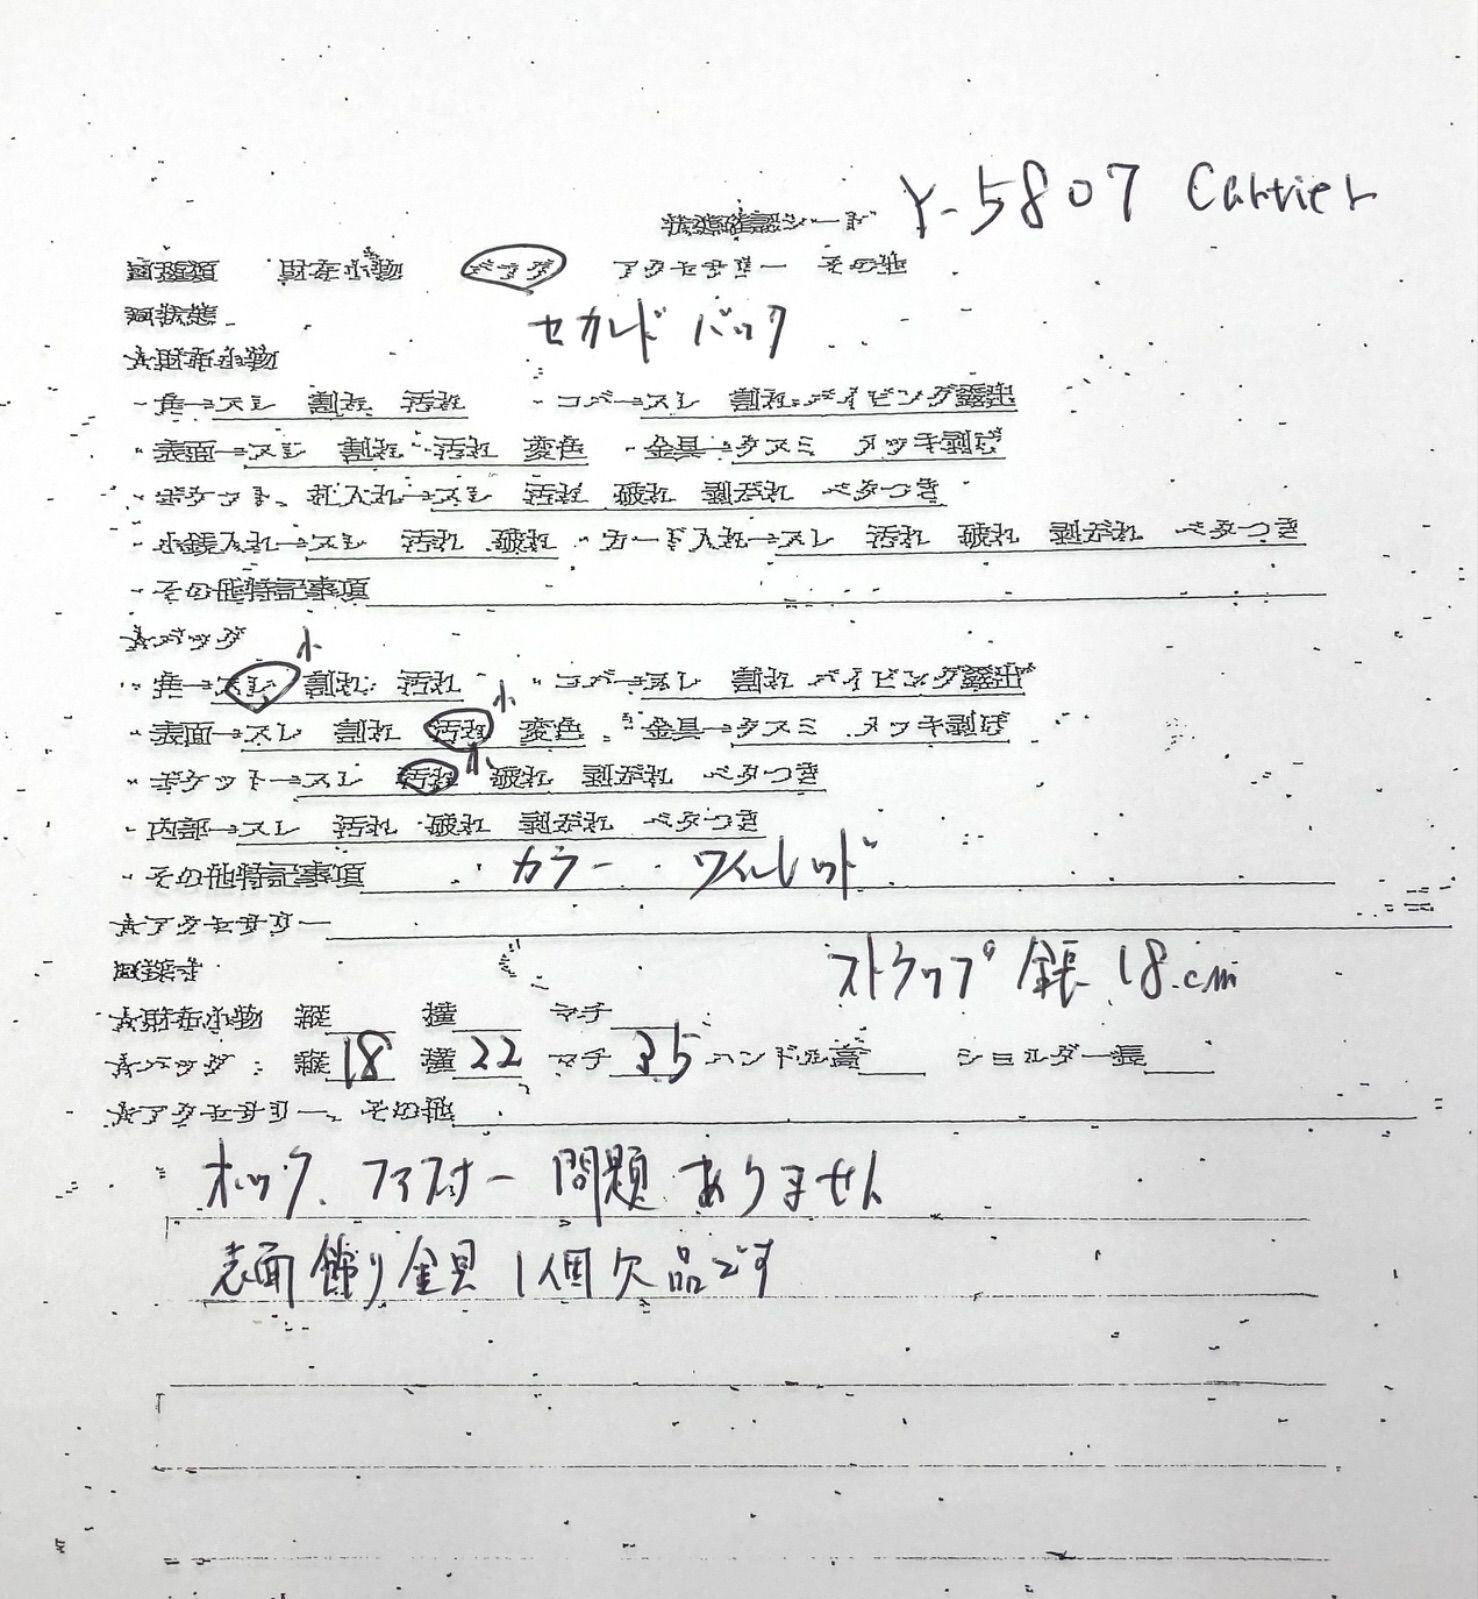 Y-5807 Cartier
状態確認シート
□種類 財布小物 バッグ アクセサリー その他
□状態
セカンドバック
☆財布小物
・角→スレ 割れ 汚れ ・コバ→スレ 割れ パイピング露出
・表面→スレ 割れ 汚れ 変色 ・金具→クスミ メッキ剥げ
・ポケット、札入れ→スレ 汚れ 破れ 剥がれ ベタつき
・小銭入れ→スレ 汚れ 破れ ・カード入れ→スレ 汚れ 破れ 剥がれ ベタつき
・その他特記事項
☆バッグ
小
・角→スレ 割れ 汚れ ・コバ→スレ 割れ パイピング露出
小
・表面→スレ 割れ 汚れ 変色 ・金具→クスミ メッキ剥げ
小
・ポケット→スレ 汚れ 破れ 剥がれ ベタつき
・内部→スレ 汚れ 破れ 剥がれ ベタつき
・その他特記事項 カラー ワインレッド
☆アクセサリー
□採寸
ストラップ全長 18cm
☆財布小物 縦 横 マチ
☆バッグ 縦18 横22 マチ3.5 ハンドル高 ショルダー長
☆アクセサリー、その他
ホック、ファスナー問題ありません
表面飾り金具1個欠品です